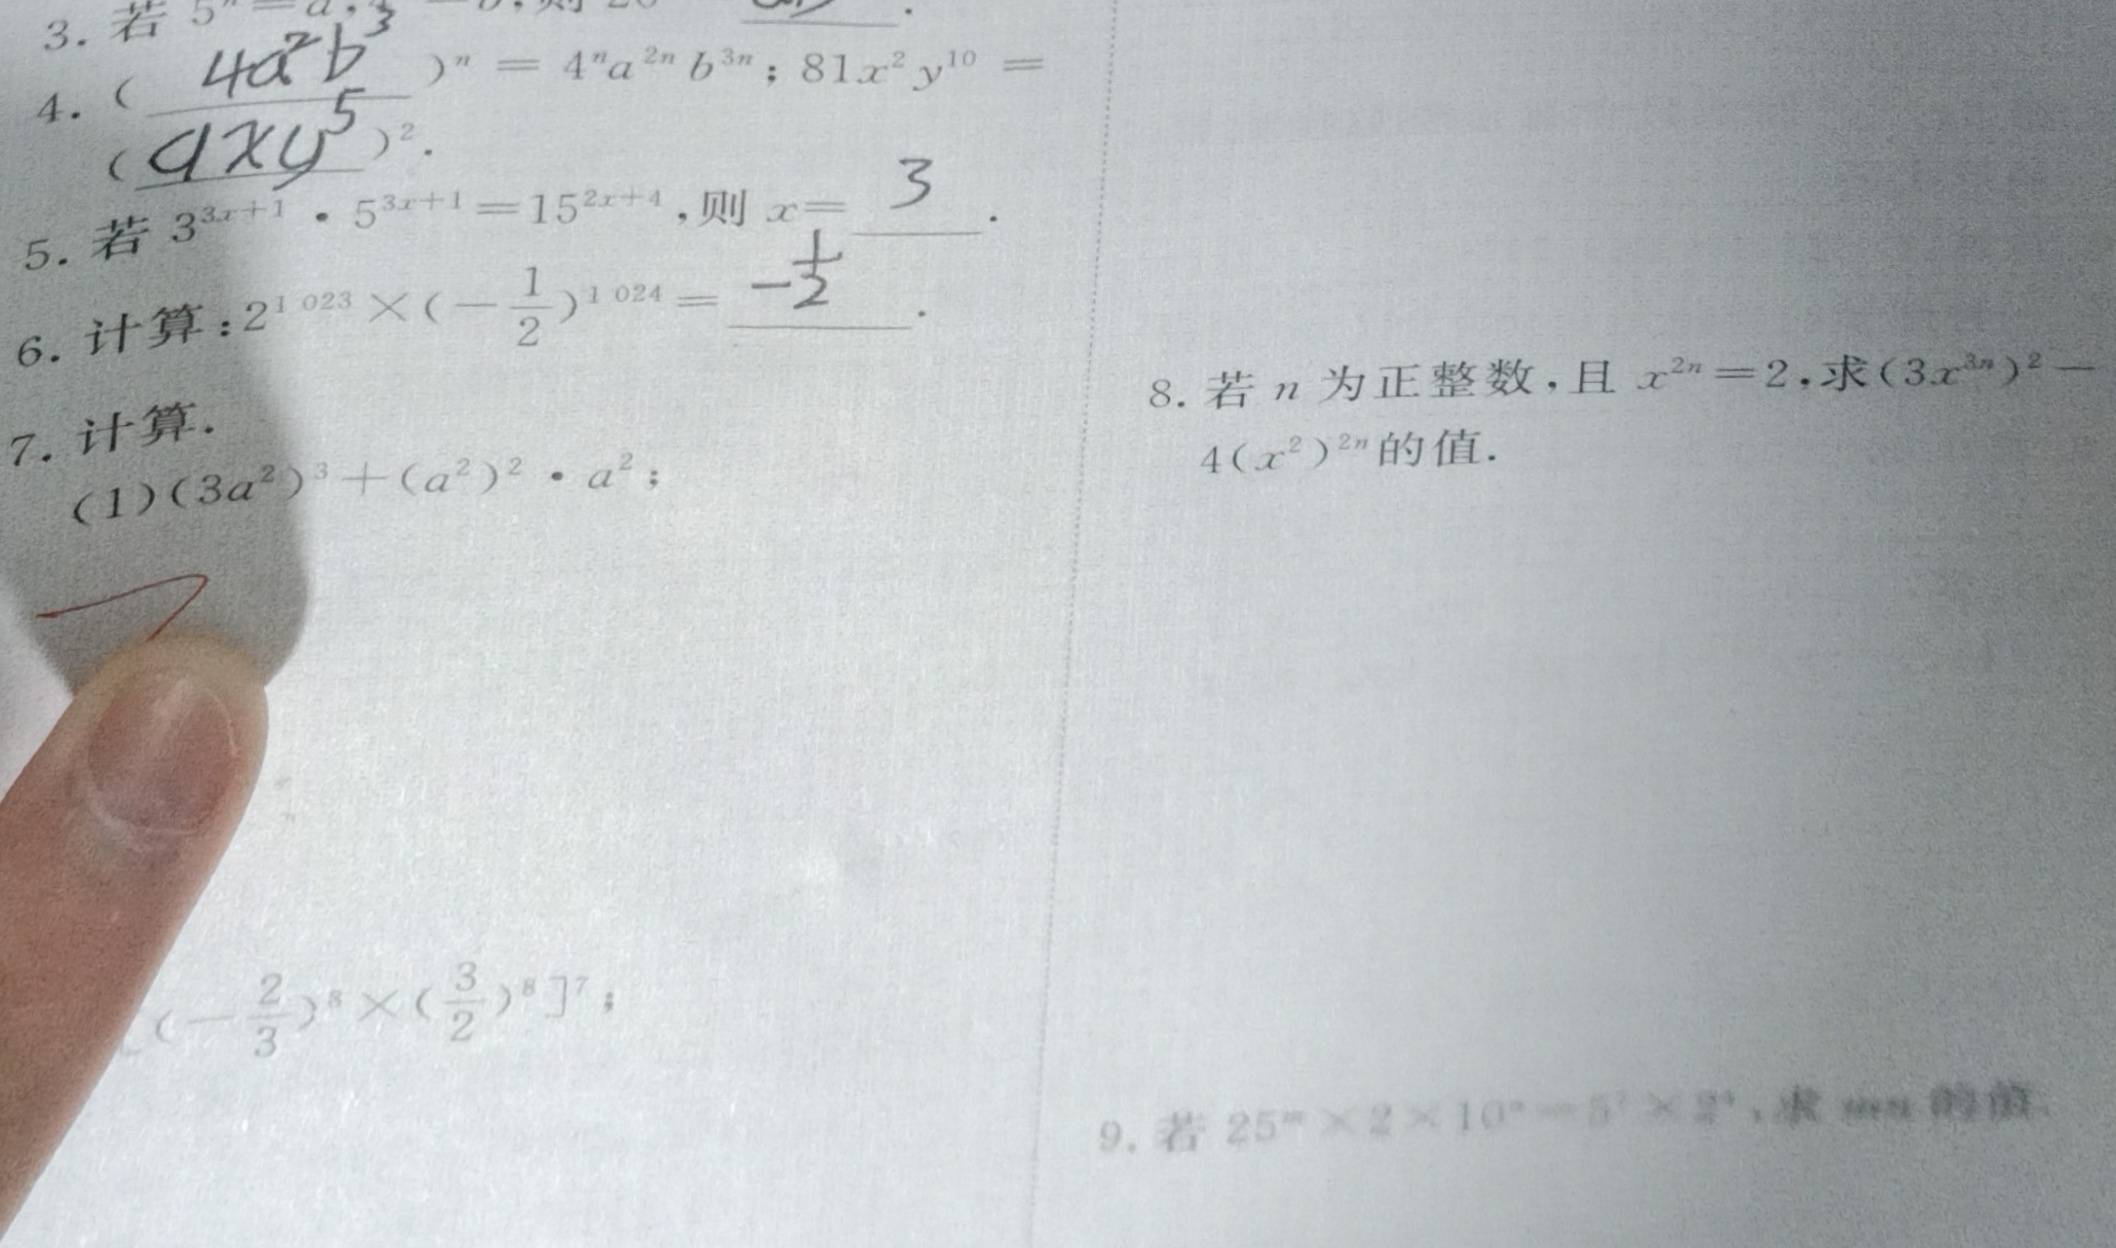 3. 若 5ⁿ = a,
4. ( 4a²b³ )ⁿ = 4ⁿa²ⁿb³ⁿ; 81x²y¹⁰ =
( 9xy⁵ )².
5. 若 3³ˣ⁺¹ · 5³ˣ⁺¹ = 15²ˣ⁺⁴, 则 x = 3.
6. 计算: 2¹ ⁰²³ × (-1/2)¹ ⁰²⁴ = -1/2.
7. 计算.
(1)(3a²)³ + (a²)² · a²;
(-2/3)⁸ × (3/2)⁸]⁷;
8. 若 n 为正整数, 且 x²ⁿ = 2, 求(3x³ⁿ)² -
4(x²)²ⁿ的值.
9. 若 25ᵐ × 2 × 10ⁿ = 5⁷ × 2⁴, 求 mn 的值.